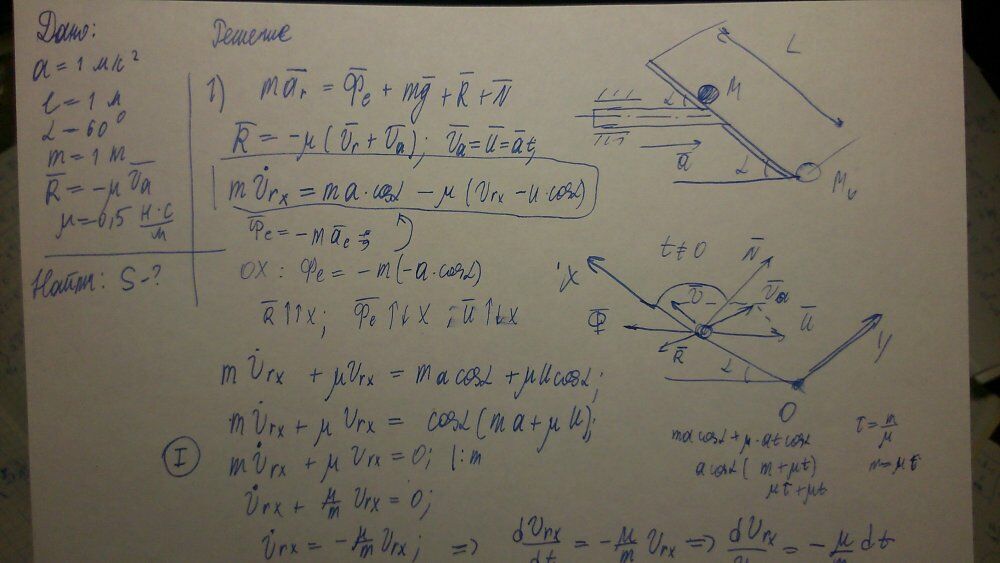 Дано:
a = 1 м/с²
l = 1 м
α = 60°
m = 1 т
R̄ = -μ V̄a
μ = 0,5 Н·с/м
Найти: S-?
Решение
1) m ār = Φ̄e + mḡ + R̄ + N̄
R̄ = -μ (V̄r + V̄a); V̄a = Ū = āt,
m V̇rx = ma·cosα - μ (Vrx - u cosα)
Φ̄e = -m āe =>
OX: Φe = -m(-a·cosα)
R̄ ↑↑ X; Φ̄e ↑↓ X; Ū ↑↓ X
m V̇rx + μVrx = ma cosα + μU cosα;
m V̇rx + μ Vrx = cosα (ma + μ U);
I
m V̇rx + μ Vrx = 0; |:m
V̇rx + μ/m Vrx = 0;
V̇rx = - μ/m Vrx; => dVrx/dt = - μ/m Vrx => dVrx = - μ/m dt
L
α
M
ā
α
M₀
t ≠ 0
N̄
X
V̄a
Φ̄
Ū
R̄
α
Y
O
ma cosα + μ·at cosα
a cosα (m + μt)
μτ + μt
τ = m/μ
m = μτ